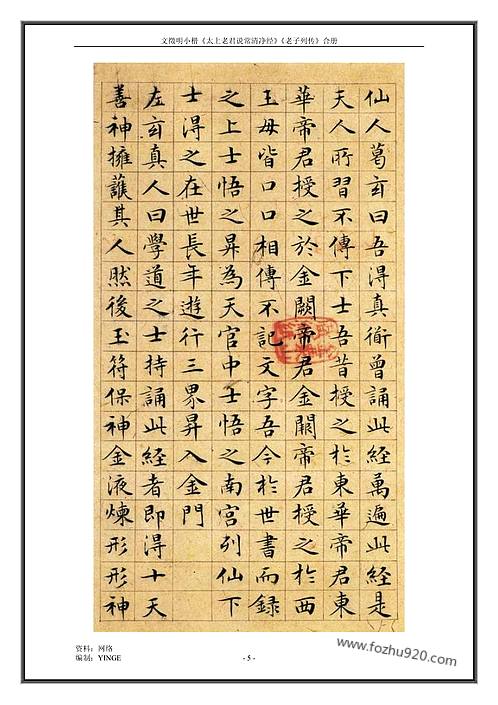 文徵明小楷《太上老君说常清净经》《老子列传》合册
仙人葛玄曰吾得真衜曾誦此經萬遍此經是
天人所習不傳下士吾昔授之於東華帝君東
華帝君授之於金闕帝君金闕帝君授之於西
王母皆口口相傳不記文字吾今於世書而録
之上士悟之昇為天官中士悟之南宮列仙下
士得之在世長年遊行三界昇入金門
左玄真人曰學道之士持誦此經者即得十天
善神擁護其人然後玉符保神金液煉形形神
资料：网络
编制：YINGE
- 5 -
www.fozhu920.com